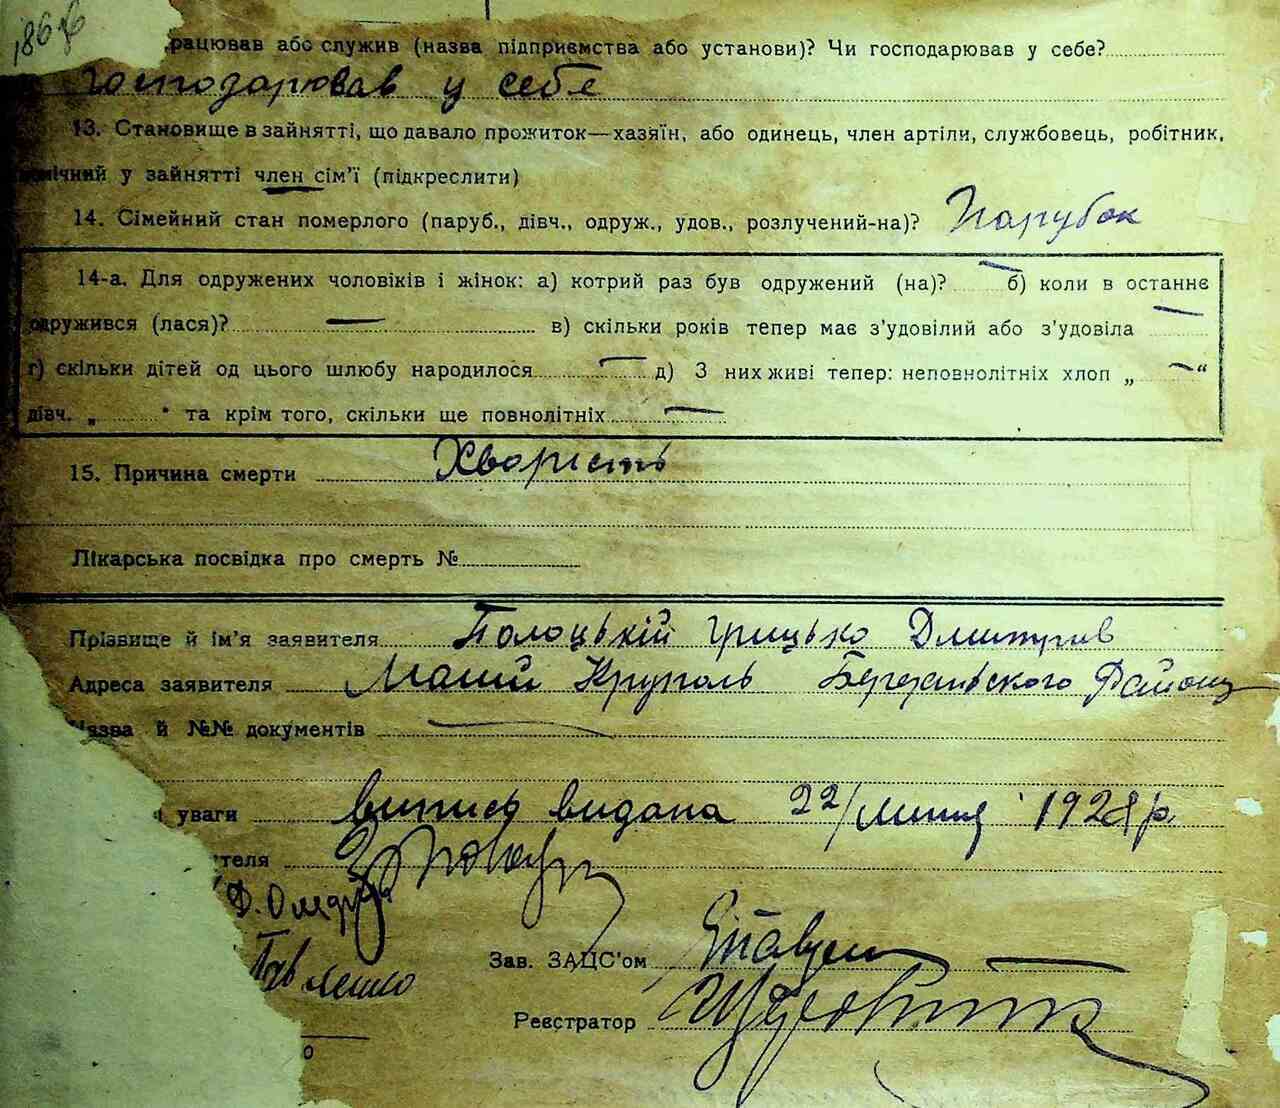 рацював або служив (назва підприємства або установи)? Чи господарював у себе?
Господарював у себе
13. Становище в зайнятті, що давало прожиток—хазяїн, або одинець, член артіли, службовець, робітник,
мічний у зайнятті член сім'ї (підкреслити)
14. Сімейний стан померлого (паруб., дівч., одруж., удов., розлучений-на)? Парубок
14-а. Для одружених чоловіків і жінок: а) котрий раз був одружений (на)? — б) коли в останнє
одружився (лася)? — в) скільки років тепер має з'удовілий або з'удовіла —
г) скільки дітей од цього шлюбу народилося — д) З них живі тепер: неповнолітніх хлоп „ — “
дівч. „ “ та крім того, скільки ще повнолітніх —
15. Причина смерти Хворість
Лікарська посвідка про смерть №
Прізвище й ім'я заявителя Полоцькій Грицько Дмитрів
Адреса заявителя Малий Круполь Березанського Району
назва й №№ документів —
уваги випись видана 22/липня 1928 р.
теля
Павленко
Зав. ЗАЦС'ом
Реєстратор
о